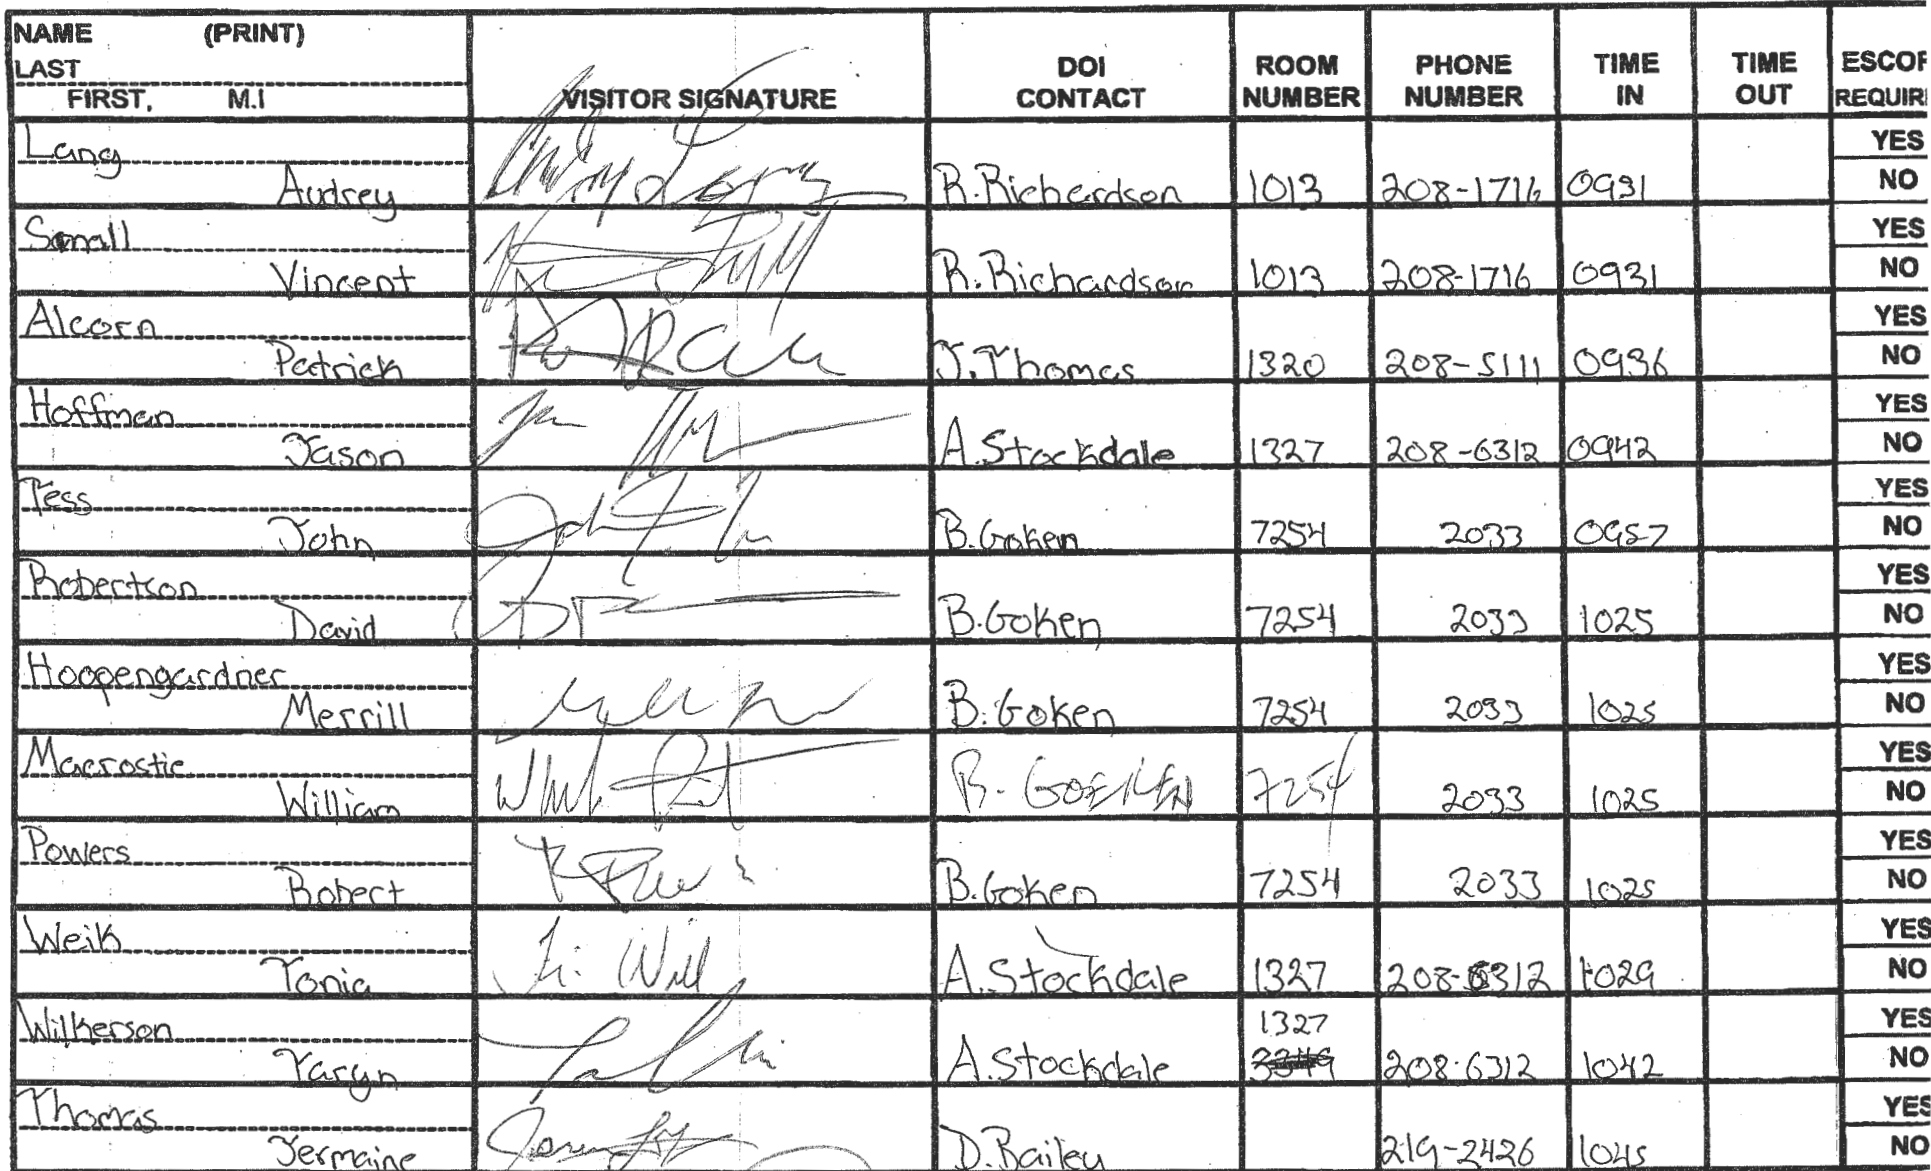 NAME (PRINT)
LAST
FIRST, M.I
VISITOR SIGNATURE
DOI CONTACT
ROOM NUMBER
PHONE NUMBER
TIME IN
TIME OUT
ESCOR
REQUIR
Lang YES
Audrey R.Richardson 1013 208-1716 0931 NO
Small YES
Vincent R.Richardson 1013 208-1716 0931 NO
Alcorn YES
Patrick J.Thomas 1320 208-5111 0936 NO
Hoffman YES
Jason A.Stockdale 1327 208-6312 0942 NO
Tess YES
John B.Goken 7254 2033 0957 NO
Robertson YES
David B.Goken 7254 2033 1025 NO
Hoopengardner YES
Merrill B.Goken 7254 2033 1025 NO
Macrostie YES
William B. GOEKEN 7254 2033 1025 NO
Powers YES
Robert B.Goken 7254 2033 1025 NO
Weik YES
Tonia A.Stockdale 1327 208-6312 1029 NO
Wilkerson 1327 YES
Taryn A.Stockdale 3349 208-6312 1042 NO
Thomas YES
Jermaine D.Bailey 219-2426 1045 NO